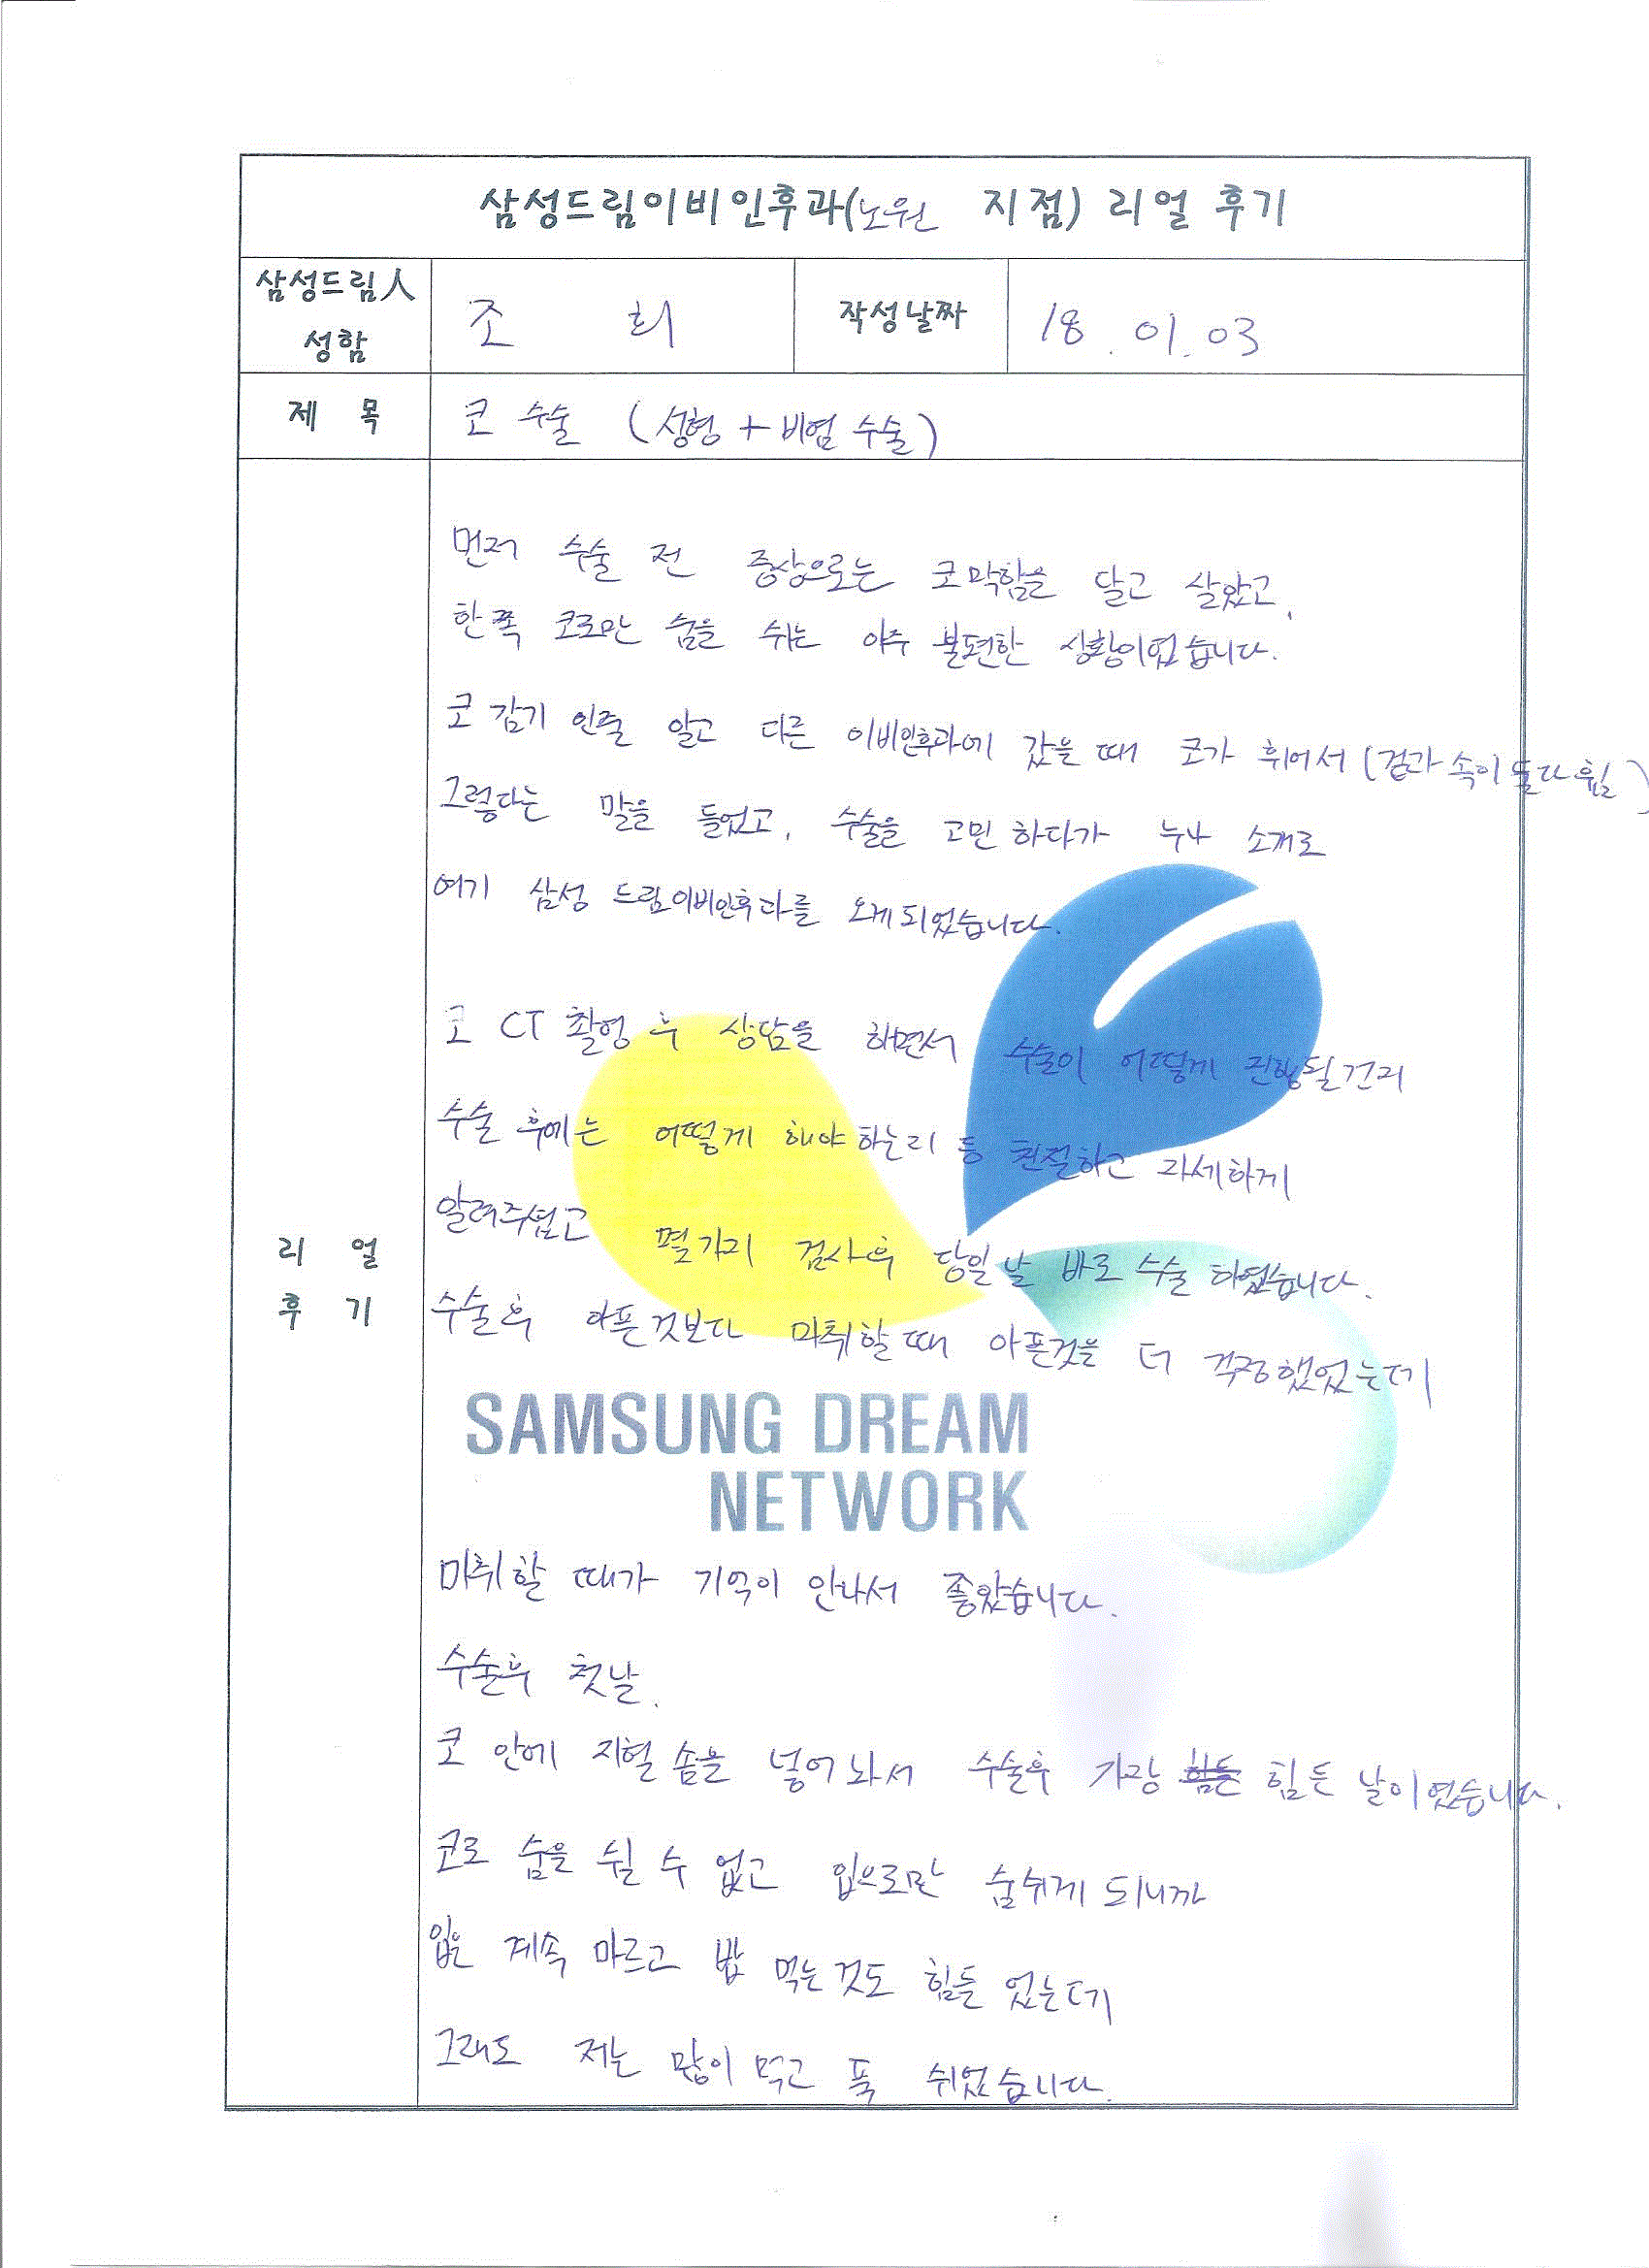 삼성드림이비인후과(노원 지점) 리얼 후기
삼성드림人
성함
조 희
작성날짜
18. 01. 03
제 목
코 수술 (성형 + 비염 수술)
리 얼
후 기
먼저 수술 전 증상으로는 코막힘을 달고 살았고,
한쪽 코로만 숨을 쉬는 아주 불편한 상황이였습니다.
코 감기 인줄 알고 다른 이비인후과에 갔을 때 코가 휘어서 (겉과 속이 둘다 휨)
그렇다는 말을 들었고, 수술을 고민 하다가 누나 소개로
여기 삼성 드림이비인후과를 오게되었습니다.
코 CT 촬영 후 상담을 하면서 수술이 어떻게 진행될건지
수술 후에는 어떻게 해야 하는지 등 친절하고 자세하게
알려주셨고 몇가지 검사후 당일날 바로 수술 하였습니다.
수술후 아픈것보다 마취할때 아픈것을 더 걱정했었는데
SAMSUNG DREAM
NETWORK
마취할 때가 기억이 안나서 좋았습니다.
수술후 첫날.
코 안에 지혈 솜을 넣어놔서 수술후 가장 힘든 힘든 날이였습니다.
코로 숨을 쉴 수 없고 입으로만 숨쉬게 되니까
입은 계속 마르고 밥 먹는것도 힘든 었는데
그래도 저는 많이 먹고 푹 쉬었습니다.